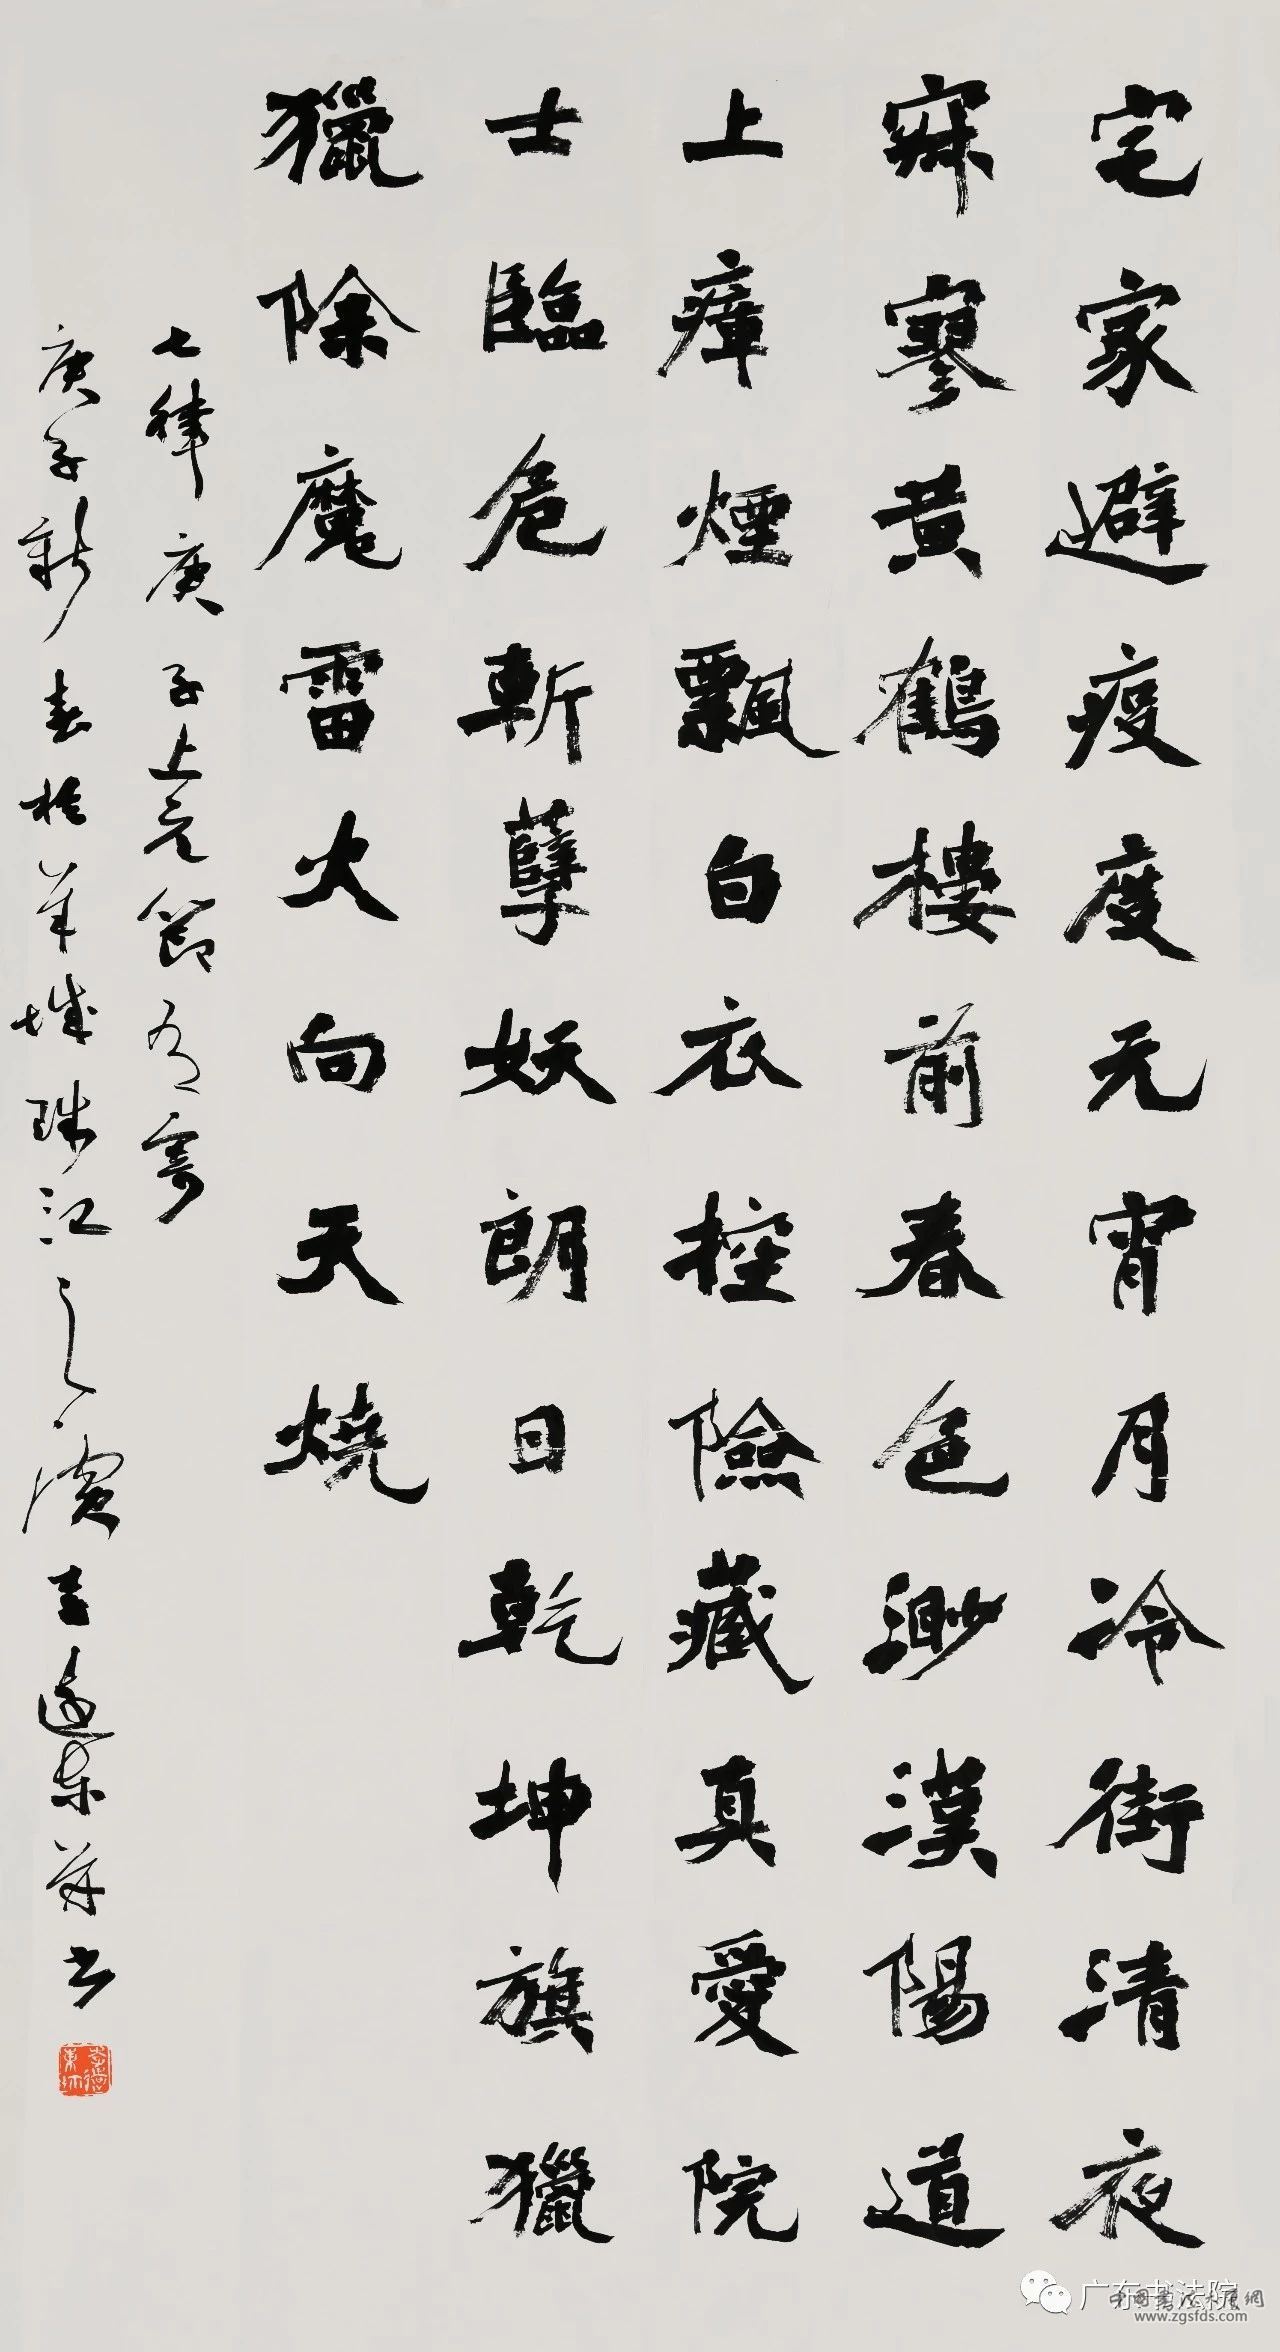 宅家避疫度元宵月冷街清夜
寂寥黄鶴樓前春色渺漢陽道
上瘴煙飄白衣控險藏真愛院
士臨危斬孽妖朗日乾坤旗獵
獵除魔雷火向天燒
七律庚子上元節有寄
庚子新春於羊城珠江之濱李遠東并书
广东书法院
中国书法大厦網
www.zgsfds.com